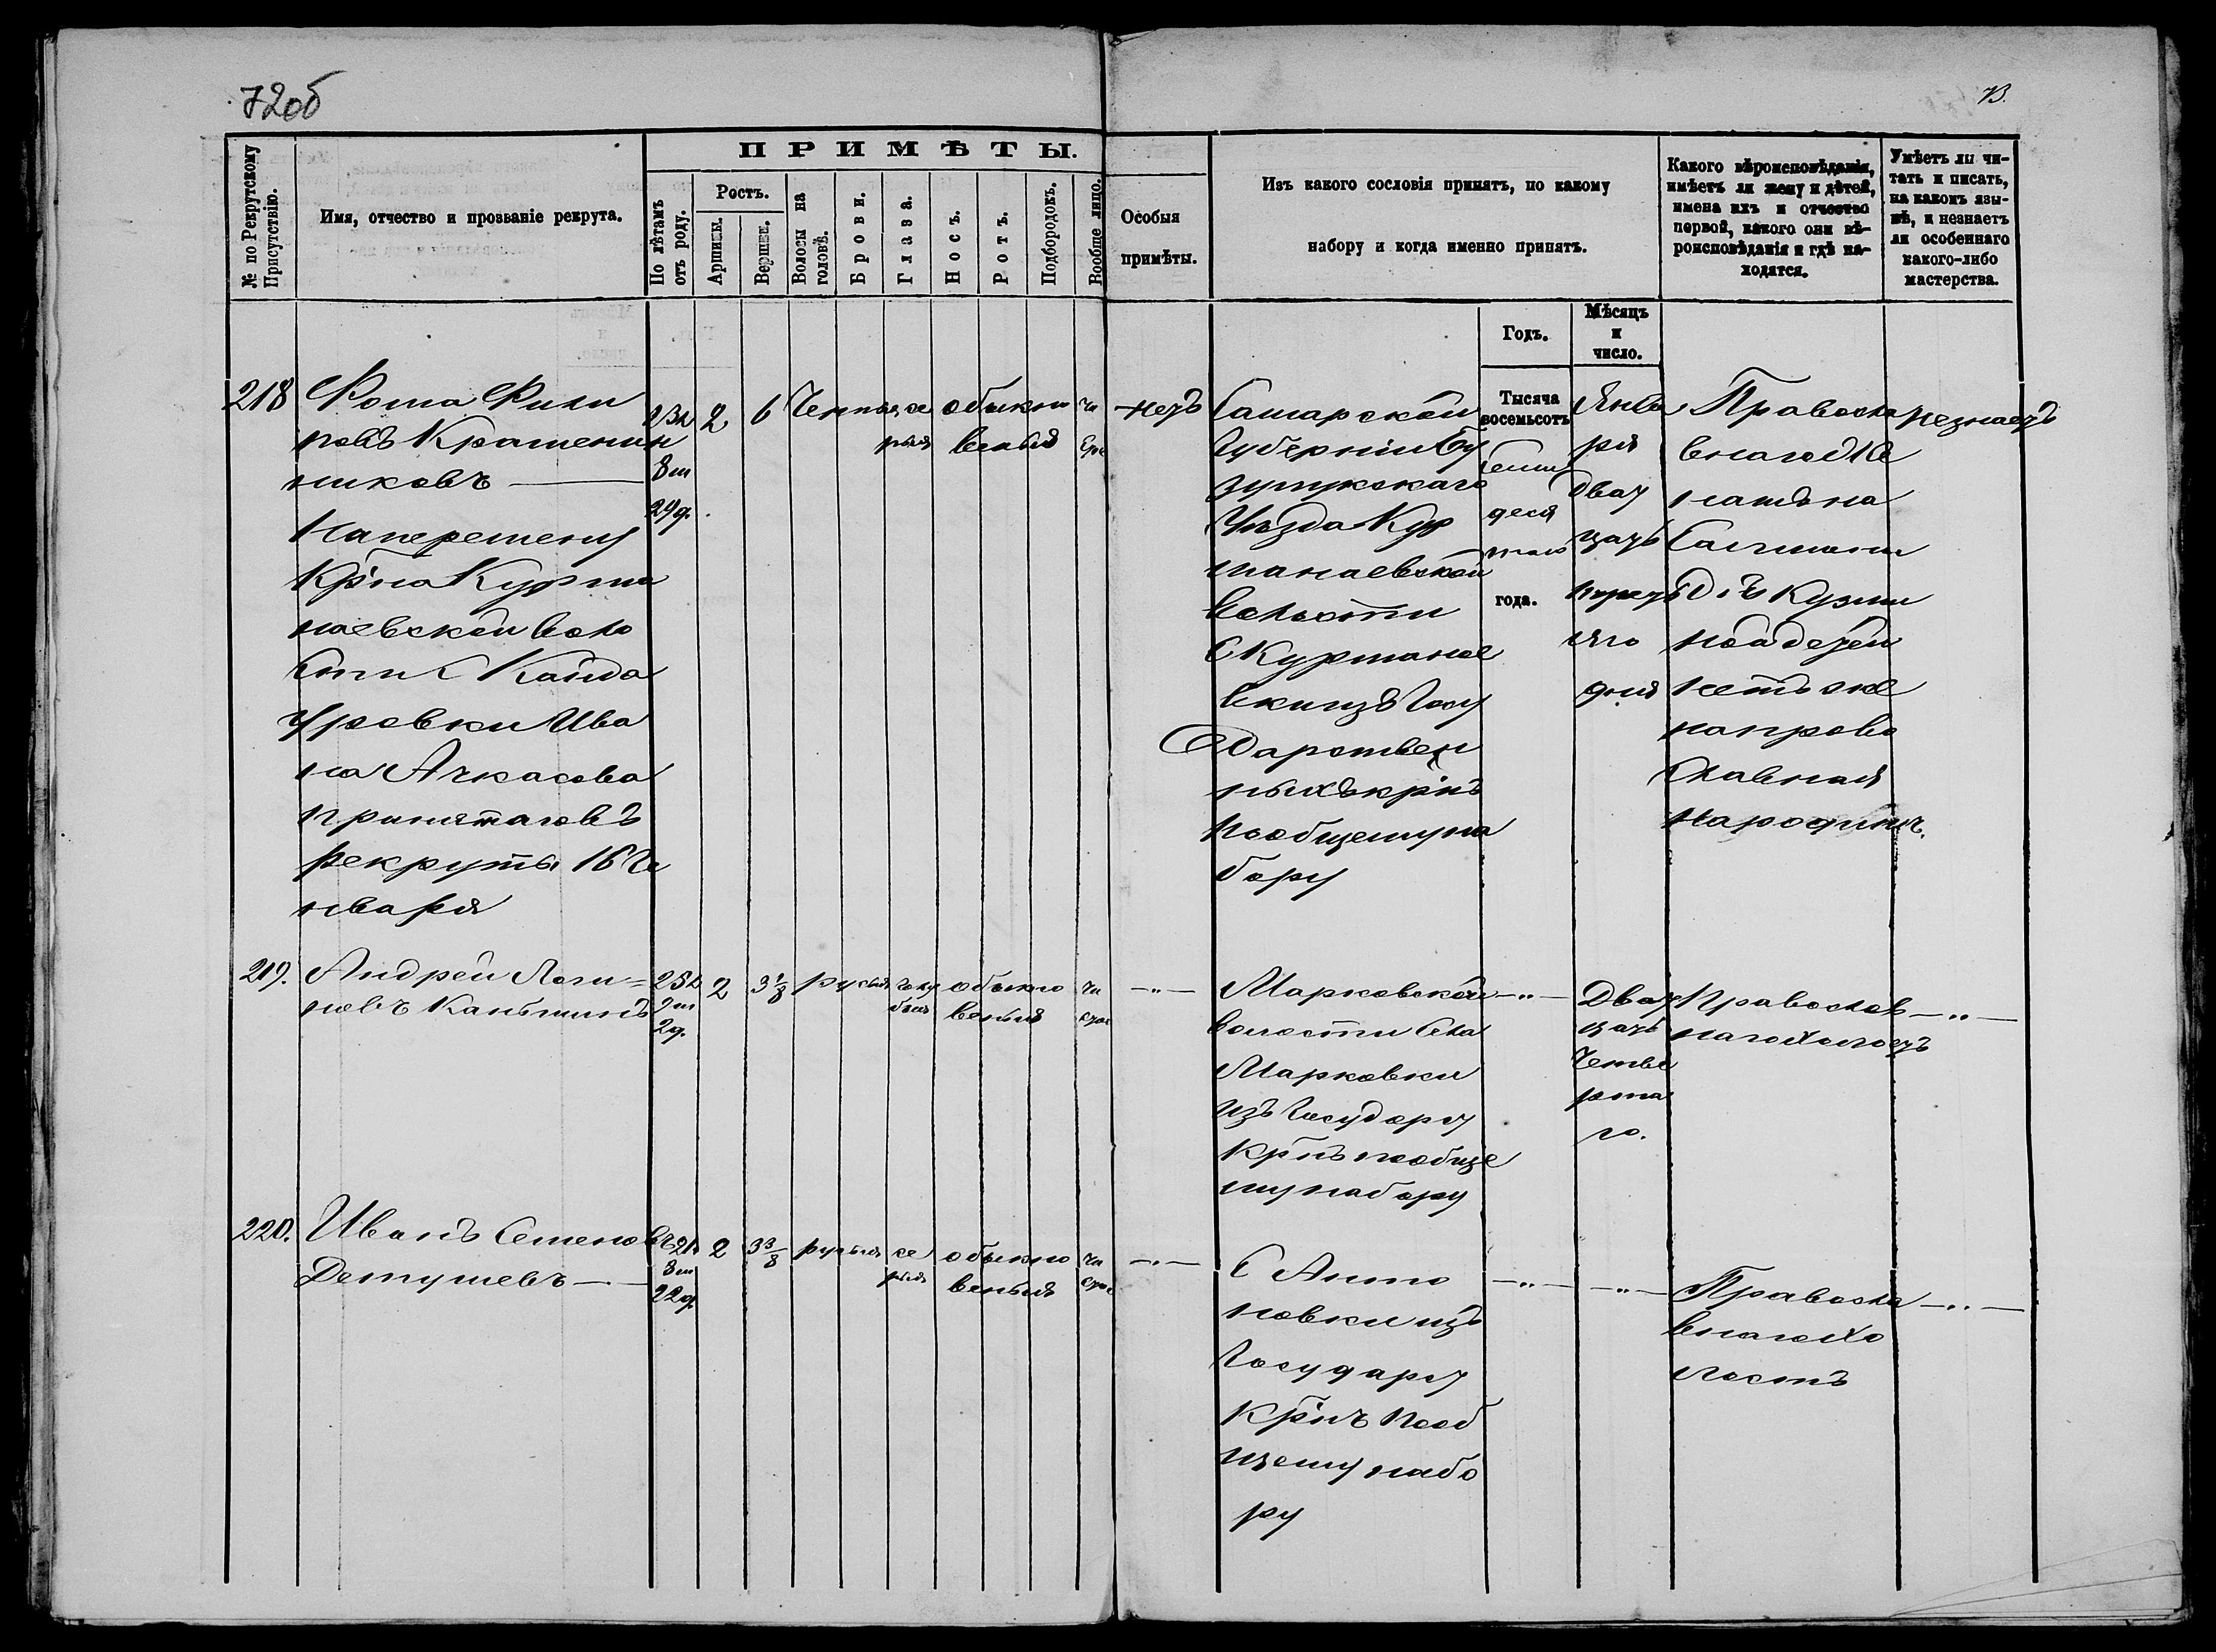 72об
73.
№ по Рекрутскому Присутствію.
Имя, отчество и прозваніе рекрута.
ПРИМѢТЫ.
По лѣтамъ отъ роду.
Ростъ.
Аршины.
Вершки.
Волосы на головѣ.
Брови.
Глаза.
Носъ.
Ротъ.
Подбородокъ.
Вообще лицо.
Особыя
примѣты.
Изъ какого сословія принятъ, по какому
набору и когда именно принятъ.
Какого вѣроисповѣданія,
имѣетъ ли жену и дѣтей,
имена ихъ и отчество
первой, какого они вѣ-
роисповѣданія и гдѣ на-
ходятся.
Умѣетъ ли чи-
тать и писать,
на какомъ язы-
кѣ, и незнаетъ
ли особеннаго
какого-либо
мастерства.
Годъ.
Мѣсяцъ
и
число.
218
Фома Фили
повъ Крашенин
никовъ
На перемену
Кр на Курма
наевской воло
сти С Кайда
уровки Ива
на Ачкасова
принятаго въ
рекруты 16 Ге
нваря
8 м
29 д.
2
6
се
рыя
обыкно
венныя
чи
стое
нетъ
Самарской
Губерніи Бу
зулукскаго
Уѣзда Кур
манаевской
волости
С Курмонае
вки изъ Госу
Дарствен
ныхъ крнъ
по общему на
бору
Тысяча
восемьсотъ
семи
деся
таго
года.
Янва
ря
двад
цать
дня
Правосла
внаго
женатъ на
дѣтей
нетъ же
на право
славная
на родинѣ.
незнаетъ
219.
Андрей Логи=
новъ Каньшинъ
25 л
2 м
2 д.
2
3 1/8
русыя
голу
быя
обыкно
венныя
чи
стое
— " —
Марковской
волости Села
Марковки
изъ Государ
крнъ по обще
му набору
— " —
Двад
цать
четве
рта
го.
Православ
наго холостъ
— " —
220.
Иванъ Семеновъ
Детушевъ
21
8 м
22 д.
2
3 3/8
русыя
се
рыя
обыкно
венныя
чи
стое
— " —
С Анто
новки изъ
Государ
Крнъ по об
щему набо
ру
— " —
— " —
Правосла
внаго хо
лостъ
— " —